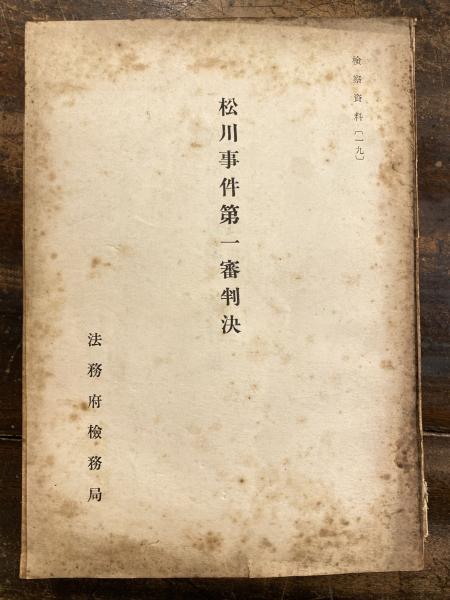 検察資料〔一九〕
松川事件第一審判決
法務府檢務局